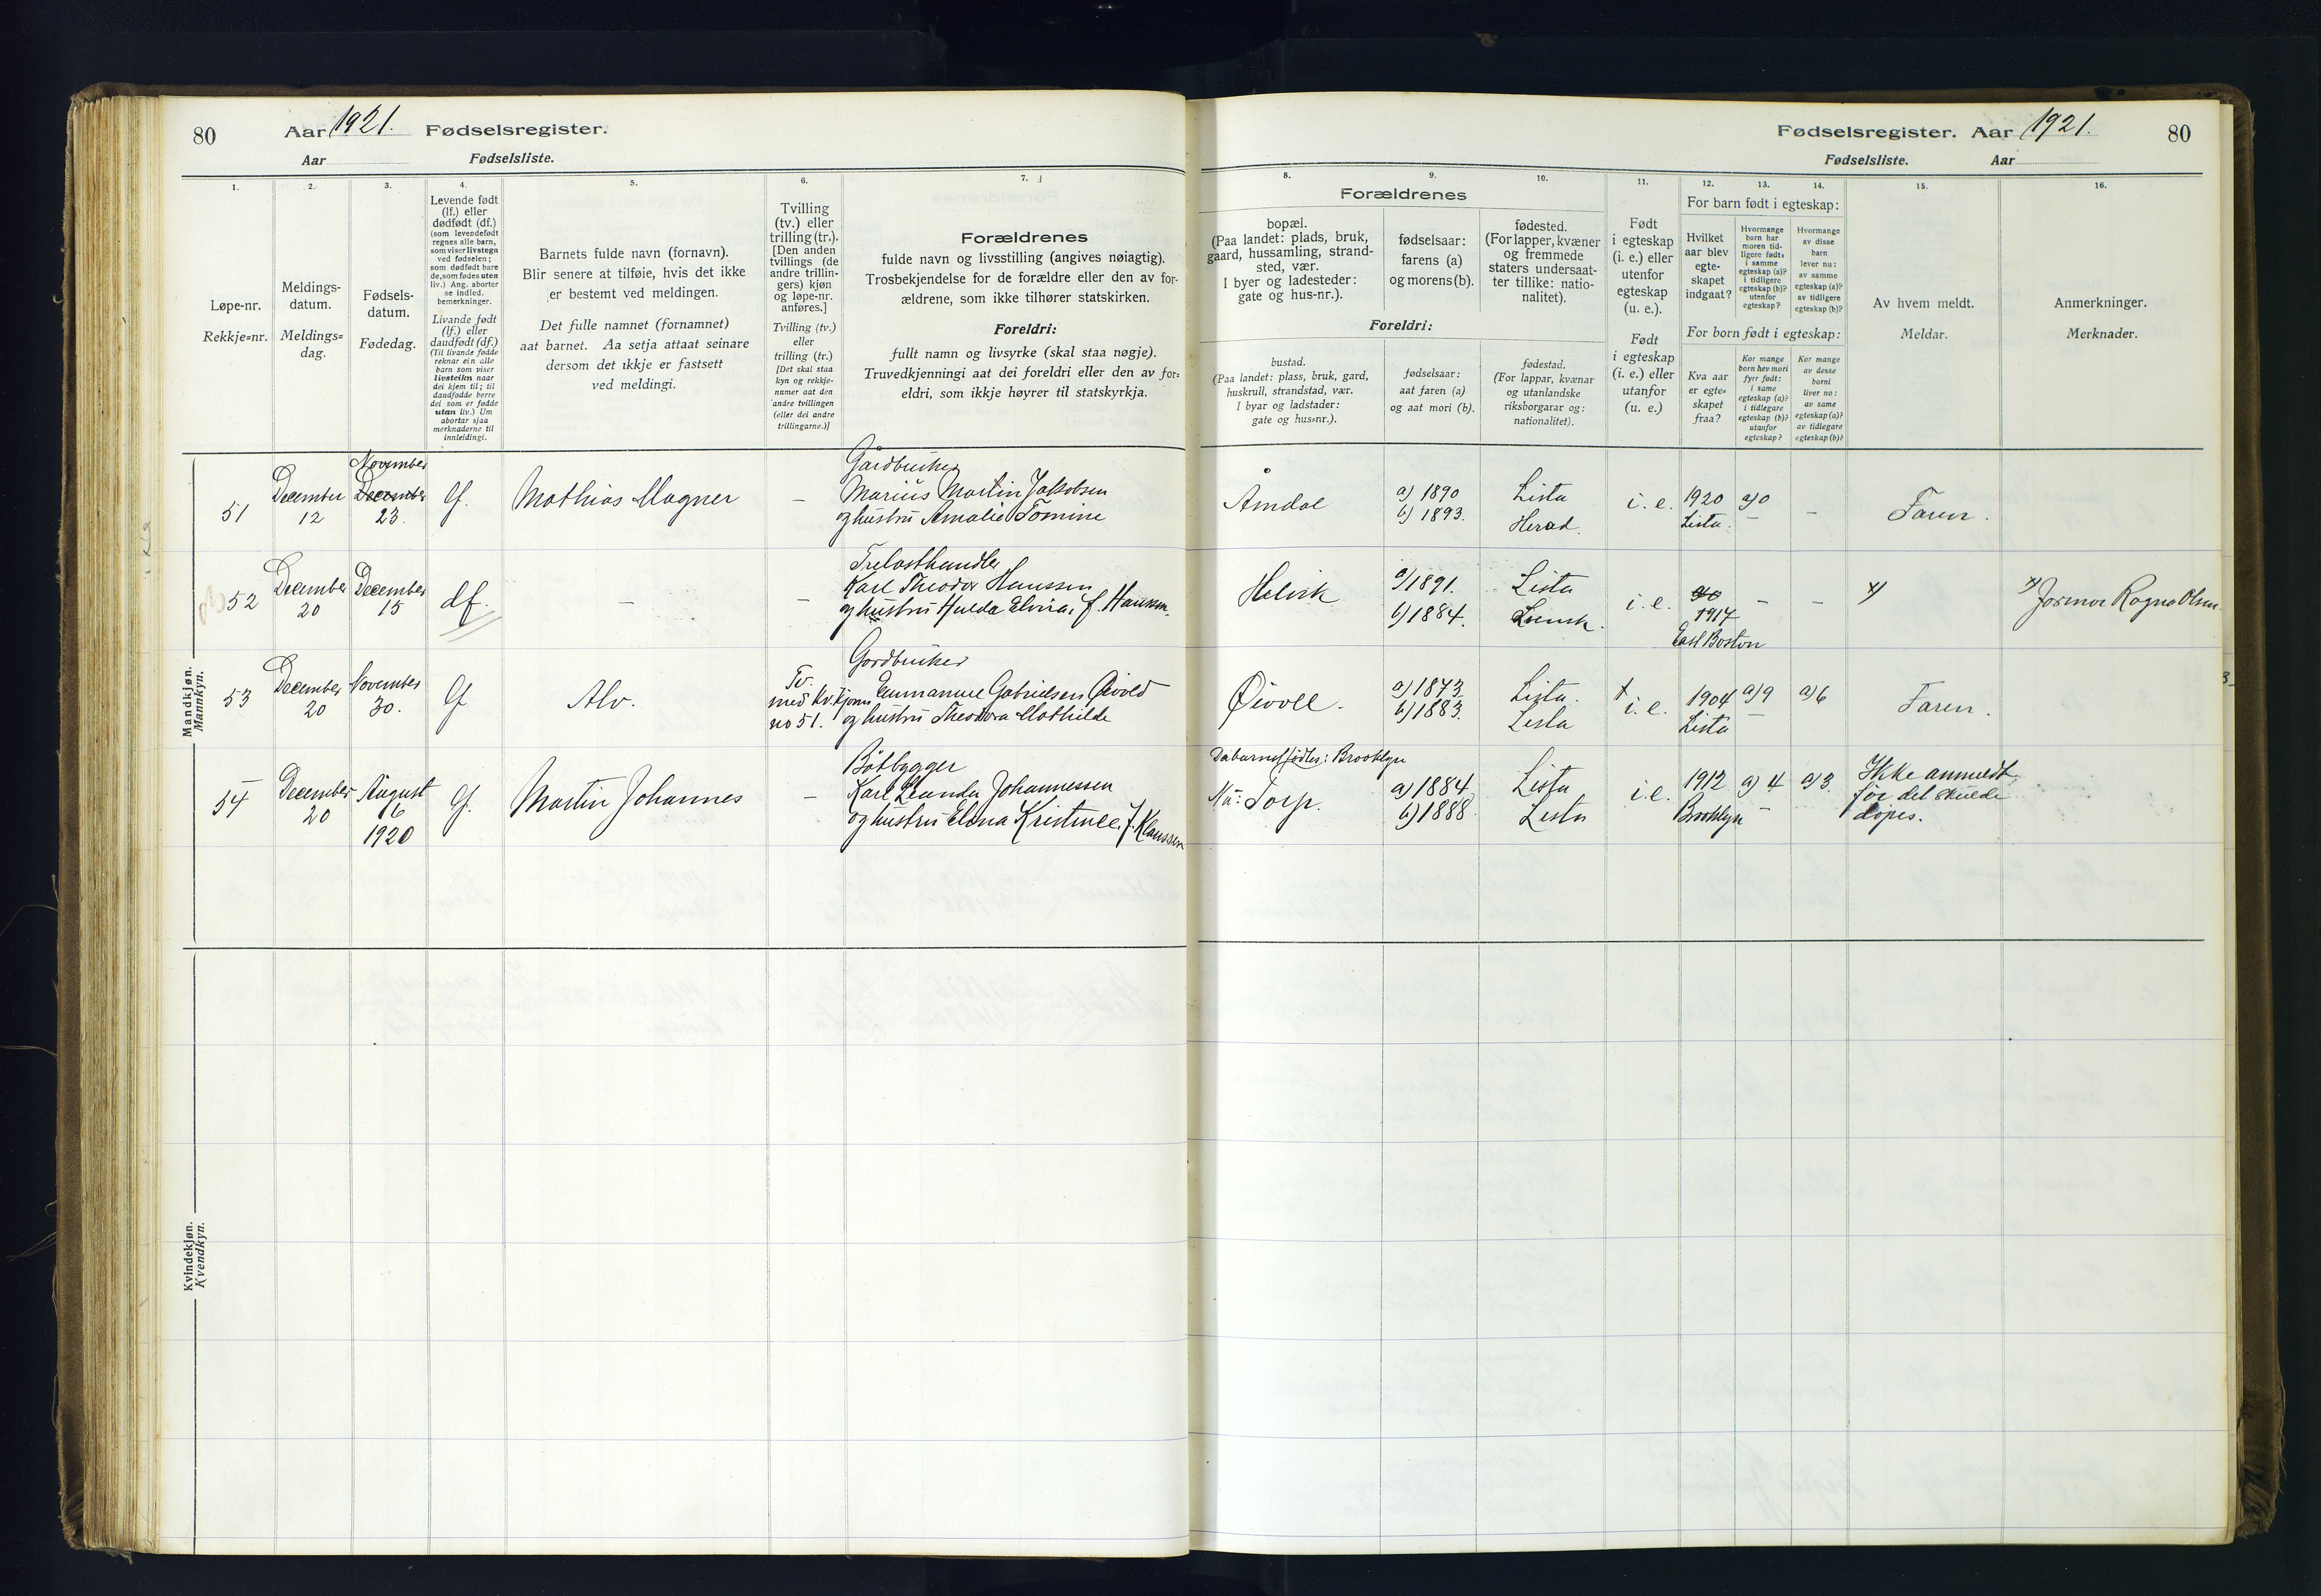 80
Aar 1921. Fødselsregister.
Aar Fødselsliste.
Fødselsregister. Aar 1921.
80
Fødselsliste. Aar
1.
Løpe-nr.
Rekkje=nr.
2.
Meldings-
datum.
Meldings=
dag.
3.
Fødsels-
datum.
Fødedag.
4.
Levende født
(lf.) eller
dødfødt (df.)
(som levendefødt
regnes alle barn,
som viser livstegn
ved fødselen;
som dødfødt bare
de, som fødes uten
liv.) Ang. aborter
se indled.
bemerkninger.
Livande født
(lf.) eller
daudfødt (df.)
(Til livande fødde
reknar ein alle
barn som viser
livsteikn naar
dei kjem til; til
daudfødde berre
dei som er fødde
utan liv.) Um
abortar sjaa
merknaderne til
innleidingi.
5.
Barnets fulde navn (fornavn).
Blir senere at tilføie, hvis det ikke
er bestemt ved meldingen.
Det fulle namnet (fornamnet)
aat barnet. Aa setja attaat seinare
dersom det ikkje er fastsett
ved meldingi.
6.
Tvilling
(tv.) eller
trilling (tr.).
[Den anden
tvillings (de
andre trillin-
gers) kjøn
og løpe-nr.
anføres.]
Tvilling (tv.)
eller
trilling (tr.)
[Det skal staa
kyn og rekkje-
numer aat den
andre tvillingen
(eller dei andre
trillingarne.)]
7.
Forældrenes
fulde navn og livsstilling (angives nøiagtig).
Trosbekjendelse for de forældre eller den av for-
ældrene, som ikke tilhører statskirken.
Foreldri:
fullt namn og livsyrke (skal staa nøgje).
Truvedkjenningi aat dei foreldri eller den av for=
eldri, som ikkje høyrer til statskyrkja.
Forældrenes
8.
bopæl.
(Paa landet: plads, bruk,
gaard, hussamling, strand-
sted, vær.
I byer og ladesteder:
gate og hus-nr.).
9.
fødselsaar:
farens (a)
og morens (b).
10.
fødested.
(For lapper, kvæner
og fremmede
staters undersaat-
ter tillike: natio-
nalitet).
Foreldri:
bustad.
(Paa landet: plass, bruk, gard,
huskrull, strandstad, vær.
I byar og ladstader:
gate og hus=nr.).
fødselsaar:
aat faren (a)
og aat mori (b).
fødestad.
(For lappar, kvænar
og utanlandske
riksborgarar og:
nationalitet).
11.
Født
i egteskap
(i. e.) eller
utenfor
egteskap
(u. e.).
Født
i egteskap
(i. e.) eller
utanfor
(u. e.)
12. 13. 14.
For barn født i egteskap:
Hvilket
aar blev
egte-
skapet
indgaat?
Hvormange
barn har
moren tid-
ligere født:
i samme
egteskap (a)?
i tidligere
egteskap (b)?
utenfor
egteskap?
Hvormange
av disse
barn
lever nu:
av samme
egteskap (a)?
av tidligere
egteskap (b)?
For born født i egteskap:
Kva aar
er egte=
skapet
fraa?
Kor mange
born hev mori
fyrr født:
i same
egteskap (a)?
i tidlegare
egteskap (b)?
utanfor
egteskap?
Kor mange
av desse
borni
liver no:
av same
egteskap (a)?
av tidlegare
egteskap (b)?
15.
Av hvem meldt.
Meldar.
16.
Anmerkninger.
Merknader.
Mandkjøn.
Mannkyn.
51
December
12
November
December
23.
lf.
Mathias Magner
–
Gårdbruker
Marius Martin Jakobsen
og hustru Amalie Tomine
Åmdal
a) 1890
b) 1893.
Lista
Herad.
i. e.
1920
Lista.
a) 0
–
–
Faren.
52
December
20
December
15
df.
–
–
Trelasthandler
Karl Theodor Hanssen
og hustru Hulda Elvira, f. Hanssen
Helvik
a) 1891.
b) 1884.
Lista
Svensk.
i. e.
1917
East Boston
–
–
x)
x) Jormor Ragna Olsen.
53
December
20
November
30.
lf
Alv.
Tv.
med kv.kjønn
no 51.
Gårdbruker
Emmanuel Gabrielsen Øivold
og hustru Theodora Mathilde
Øivoll.
a) 1873.
b) 1883.
Lista.
Lista
i. e.
1904
Lista
a) 9
–
a) 6
Faren.
54
December
20
August
16
1920
lf.
Martin Johannes
–
Båtbygger
Karl Leander Johannessen
og hustru Elena Kristine f. Klaussen
Da barnet fødtes: Brooklyn
Nu: Torp.
a) 1884
b) 1888.
Lista
Lista
i. e.
1912
Brooklyn
a) 4
–
a) 3.
Ikke anmeldt
før det skulde
døpes.
Kvindekjøn.
Kvendkyn.